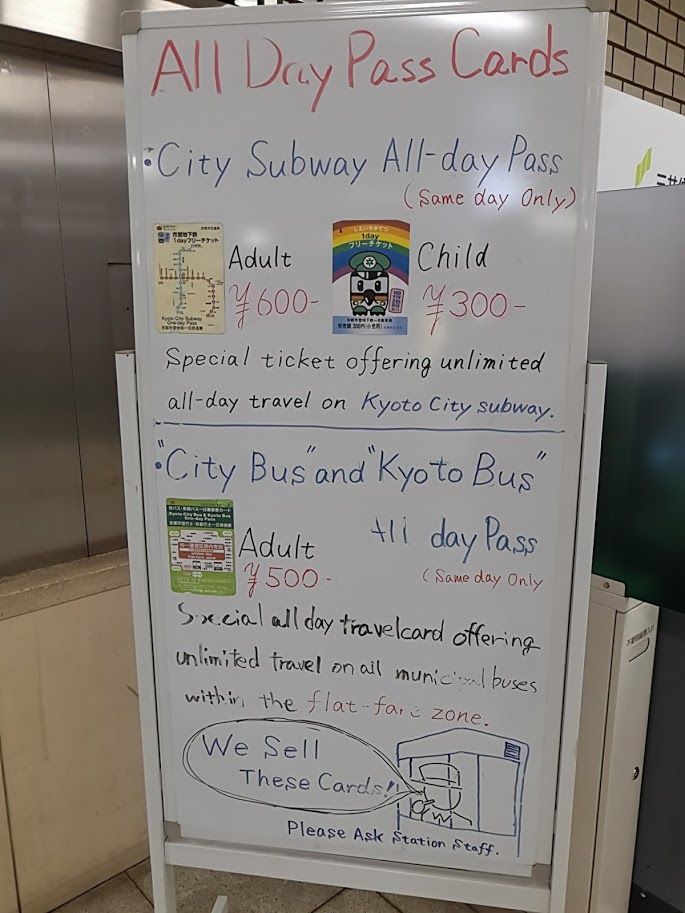 All Day Pass Cards
・City Subway All-day Pass
(Same day Only)
市営地下鉄
1dayフリーチケット
Kyoto City Subway
One-day Pass
しえいちかてつ
1day
フリーチケット
発売額 300円(小児用)
Adult
¥600-
Child
¥300-
Special ticket offering unlimited
all-day travel on Kyoto City subway.
・"City Bus" and "Kyoto Bus"
All day Pass
(Same day Only
Kyoto City Bus & Kyoto Bus
One-day Pass
Adult
¥500-
Special all day travelcard offering
unlimited travel on all municipal buses
within the flat-fare zone.
We Sell
These Cards!!
Please Ask Station Staff.